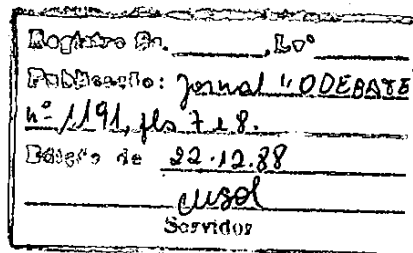 Registro Nº. ______, Lvº
Publicação: Jornal "O DEBATE
nº 1191, fls 7 e 8.
Edição de 22.12.88
Servidor